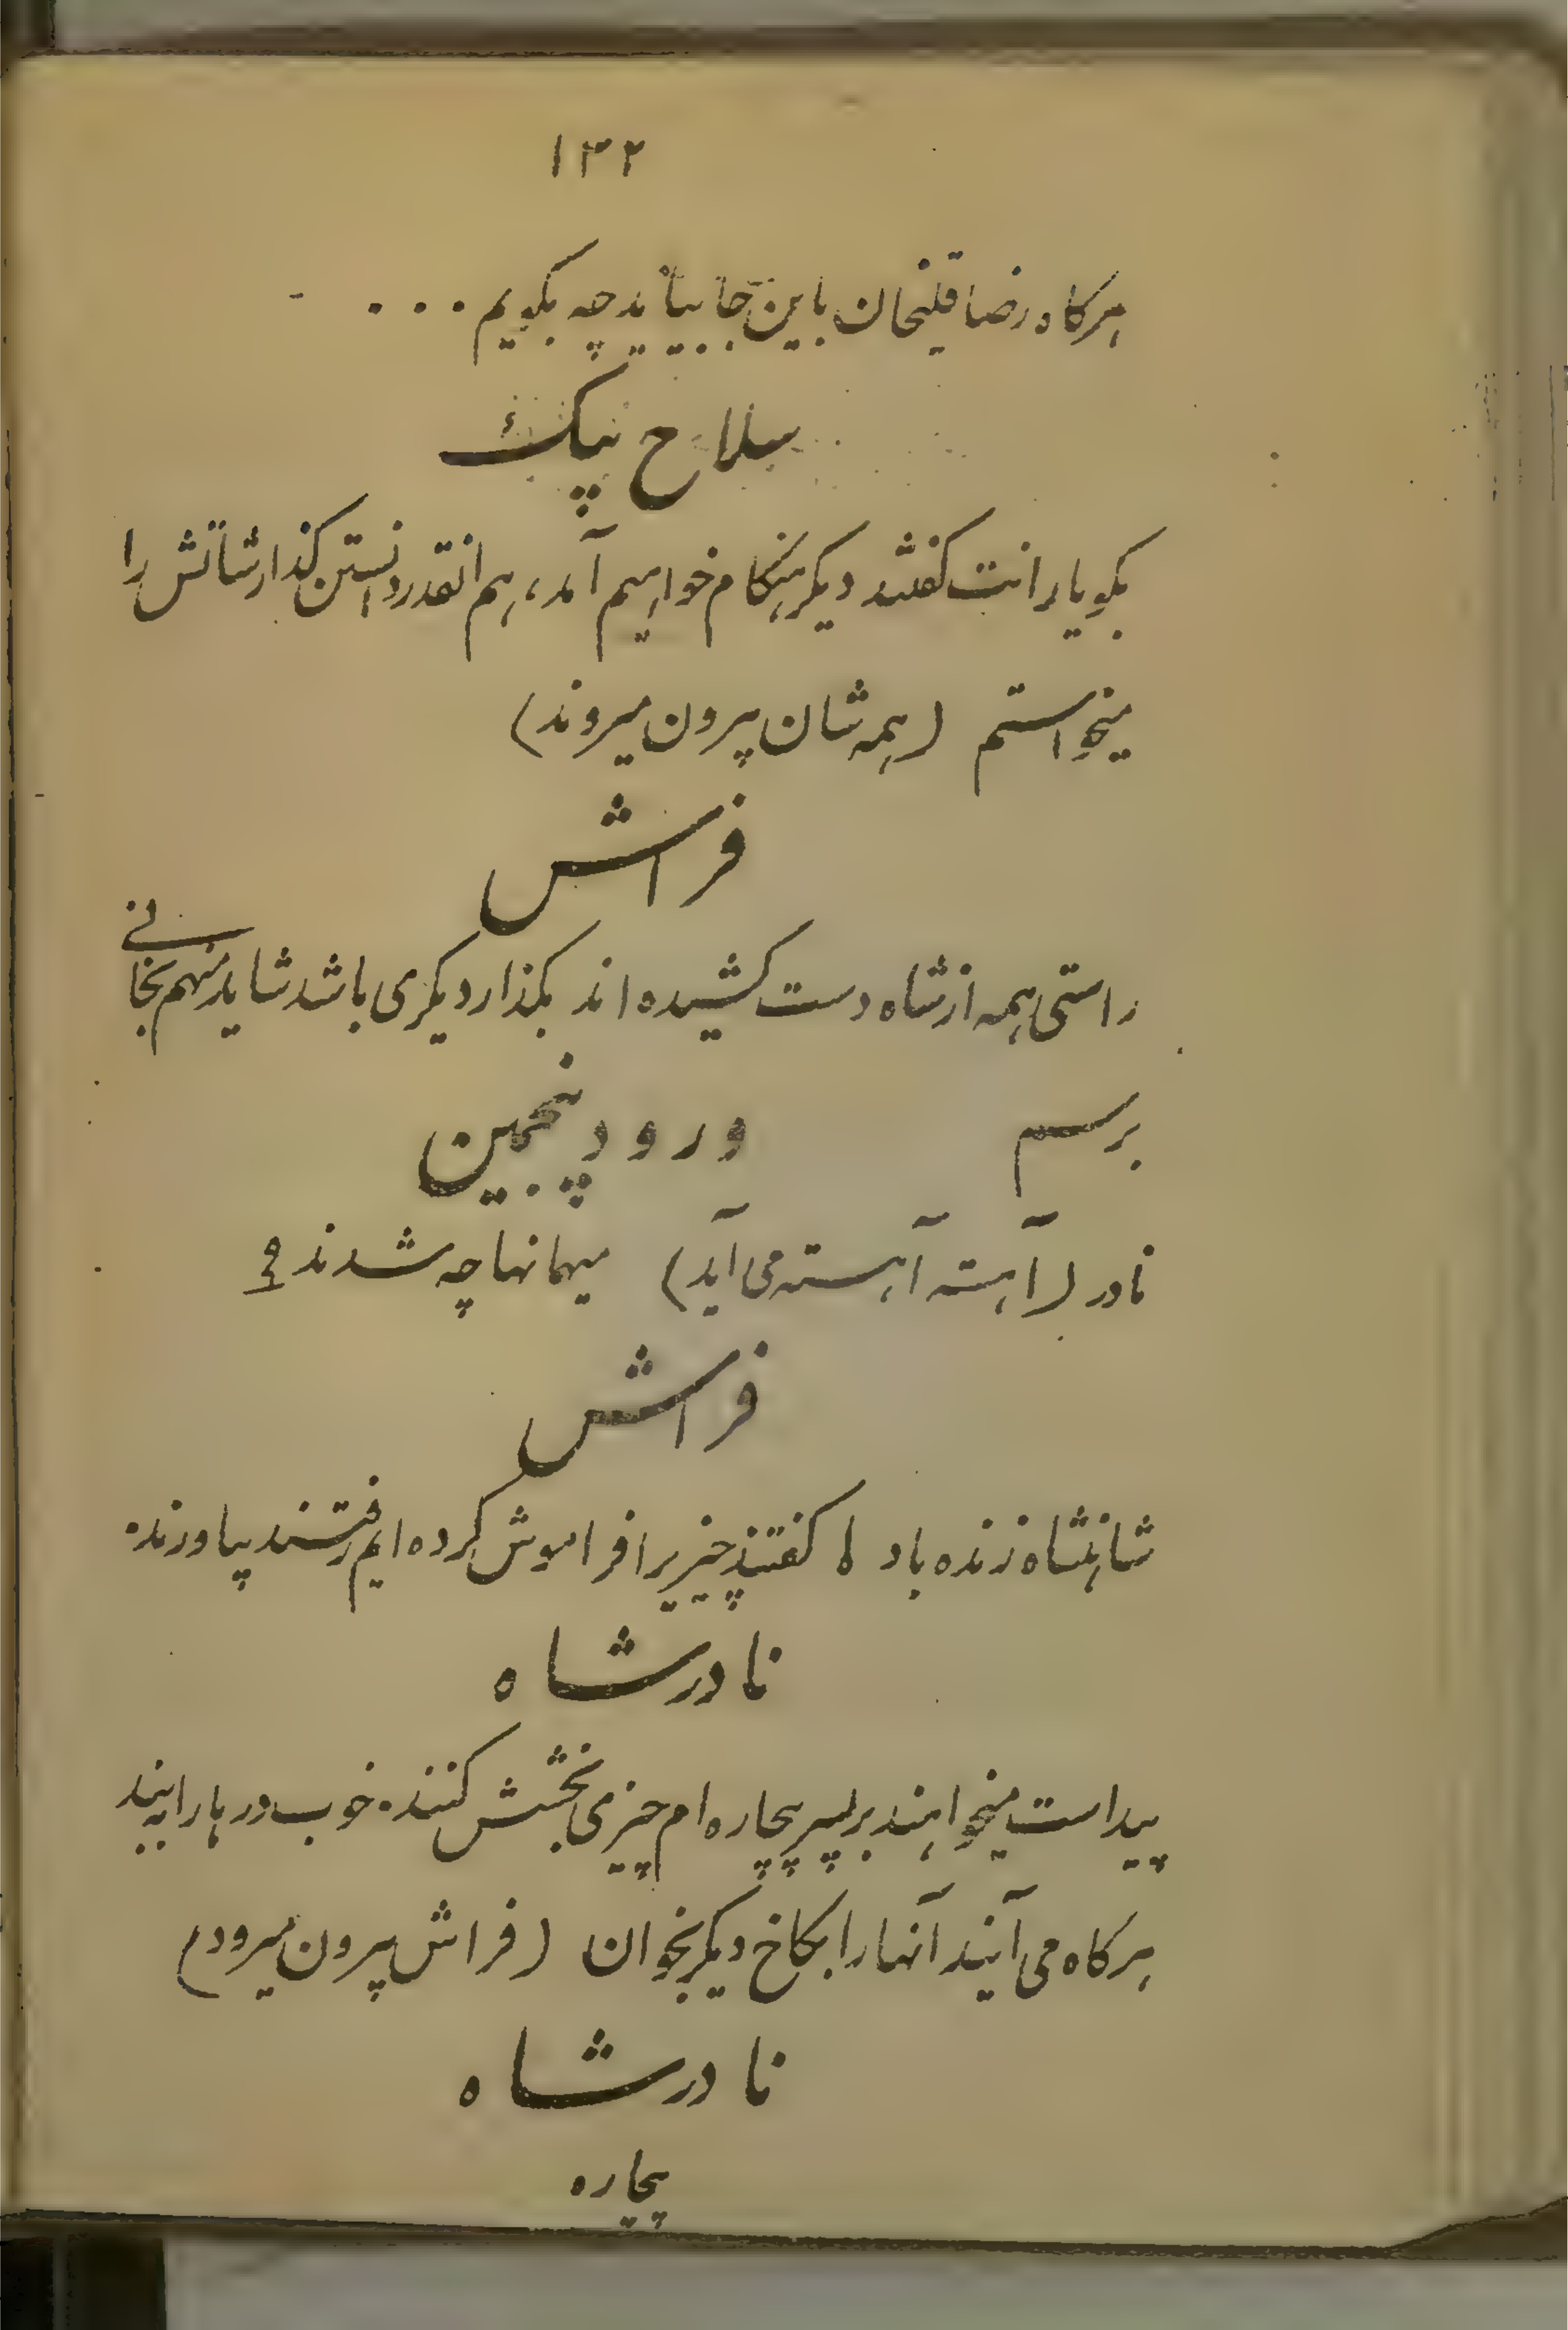 ۱۳۲
هرکاه رضاقلیخان باین جا بیاید چه بکویم . . .
سلاح بیک
بکو یارانت کفتند دیکر هنکام خواهیم آمد، هم انقدر دانستن کذارشاتش را
میخواستم (همه شان بیرون میروند)
فراش
راستی همه از شاه دست کشیده اند بکذار دیکری باشد شاید منهم بجائی
برسم ورود پنجمین
نادر (آهسته آهسته می آید) میهمانها چه شدند؟
فراش
شاهنشاه زنده باد ها کفتند چیزیرا فراموش کرده ایم رفتند بیاورند.
نادرشاه
پیداست میخواهند بر پسر بیچاره ام چیزی بخشش کنند. خوب درها را ببند
هرکاه می آیند آنها را بکاخ دیکر بخوان (فراش بیرون میرود)
نادرشاه
بیچاره